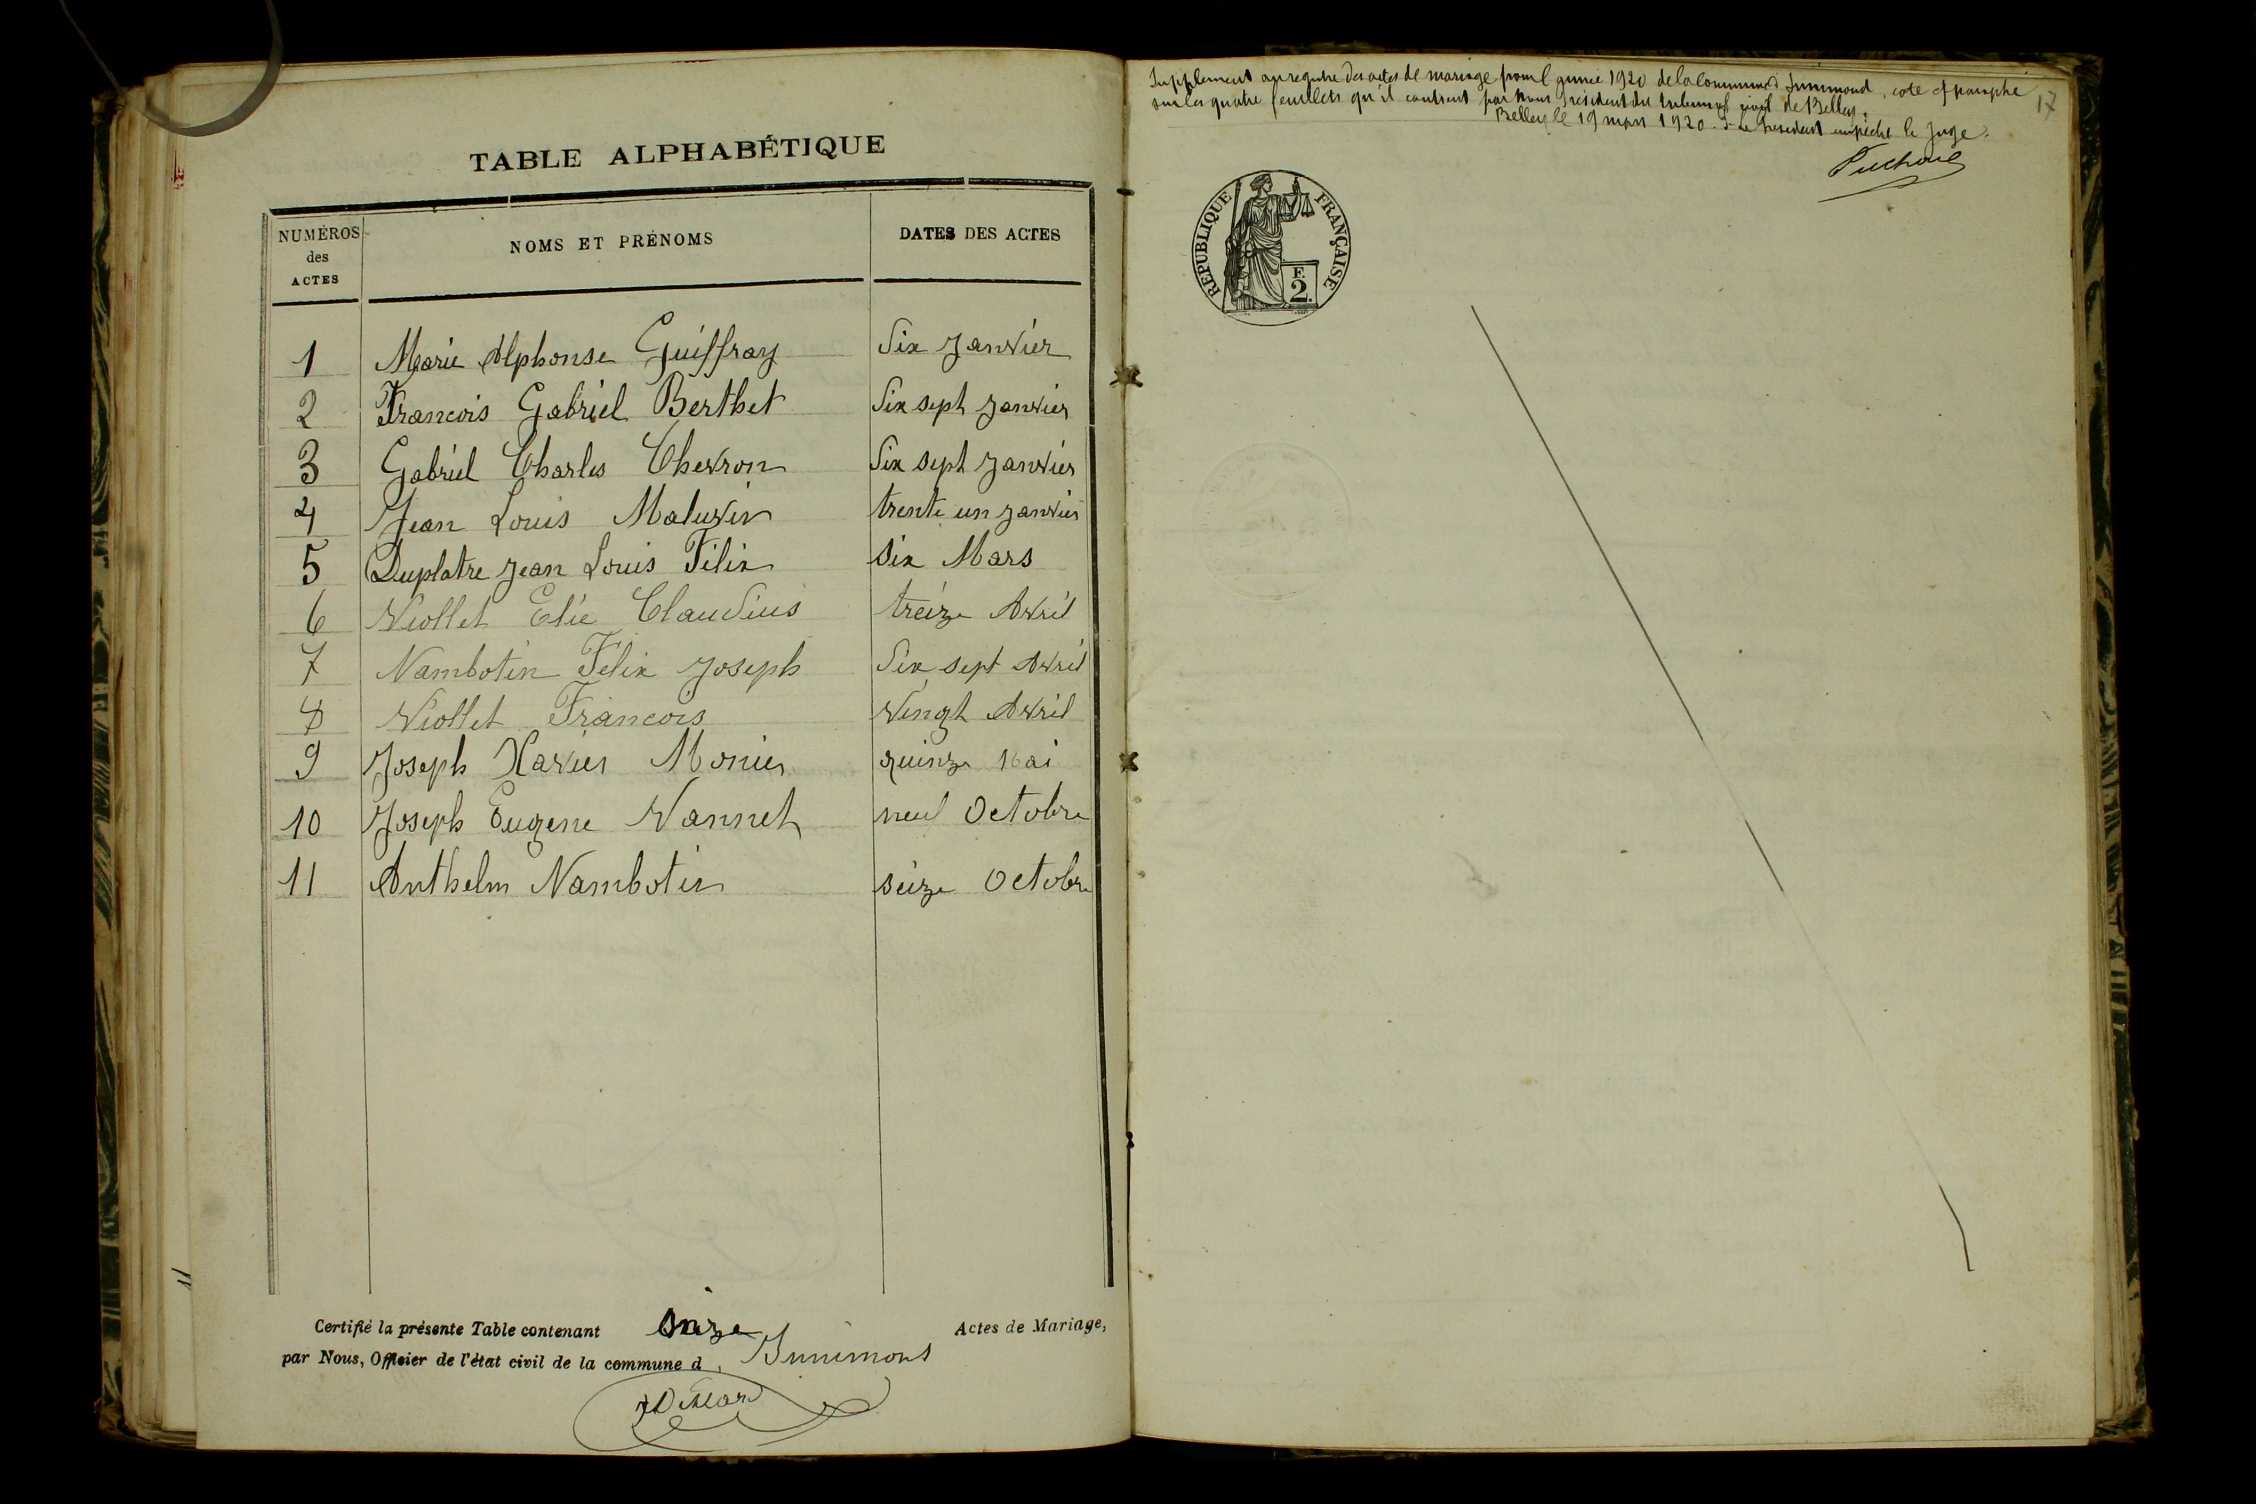 TABLE ALPHABÉTIQUE
NUMÉROS des ACTES NOMS ET PRÉNOMS DATES DES ACTES
1 Marie Alphonse Guiffray Six Janvier
2 Francois Gabriel Berthet Dix sept Janvier
3 Gabriel Charles Chevron Dix sept Janvier
4 Jean Louis Maluvin trente un Janvier
5 Duplatre Jean Louis Félix Six Mars
6 Viollet Elie Claudius treize Avril
7 Nambotin Félix Joseph Dix sept Avril
8 Viollet Francois Vingt Avril
9 Joseph Xavier Monier quinze Mai
10 Joseph Eugene Vannet neuf Octobre
11 Anthelm Nambotin seize Octobre
Certifié la présente Table contenant onze Actes de Mariage,
par Nous, Officier de l'état civil de la commune d Innimons
Supplement au registre des actes de mariage pour l'année 1920 de la commune d'Innimond, coté et paraphé
sur les quatre feuillets qu'il contient par Nous Président du tribunal civil de Belley.
Belley le 19 mars 1920. Le Président empêché le Juge.
17
RÉPUBLIQUE FRANÇAISE
F. 2.